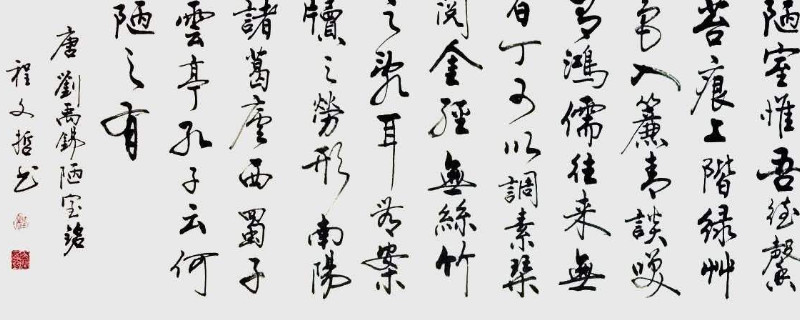 陋室惟吾德馨
苔痕上階緑艸
色入簾青談咲
有鴻儒往来無
白丁可以調素琴
閲金經無絲竹
之亂耳無案
牘之勞形南陽
諸葛廬西蜀子
雲亭孔子云何
陋之有
唐劉禹錫陋室銘
程文哲书